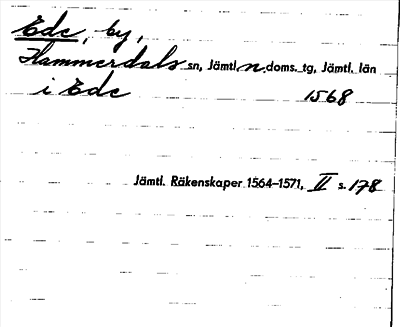 Ede, by,
Hammerdals sn, Jämtl. n. doms. tg, Jämtl. län
i Ede 1568
Jämtl. Räkenskaper 1564–1571, II s. 178